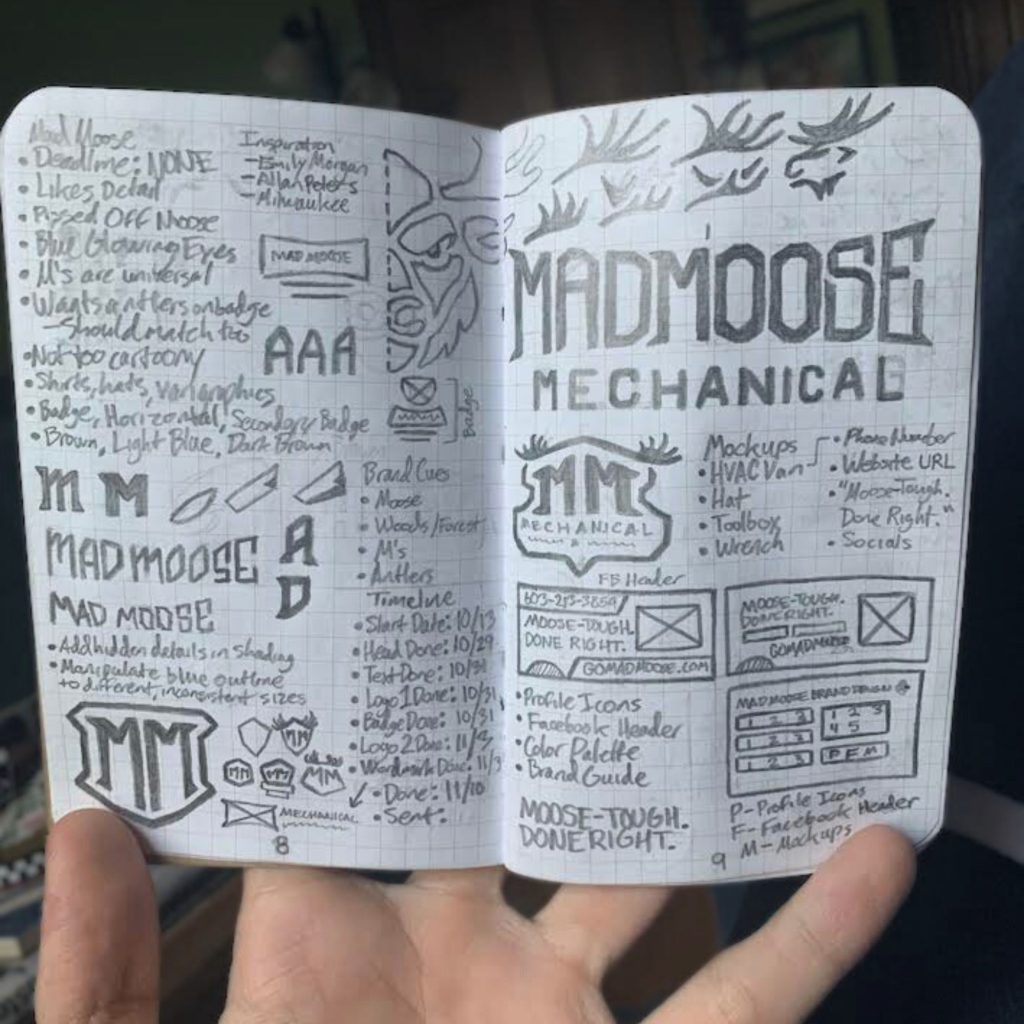 Mad Moose
• Deadline: NONE
• Likes Detail
• Pissed Off Moose
• Blue Glowing Eyes
• M's are universal
• Wants antlers on badge
– Should match too
• Not too cartoony
• Shirts, hats, van graphics
• Badge, Horizontal, Secondary Badge
• Brown, Light Blue, Dark Brown
Inspiration
– Emily Morgan
– Allan Peters
– Milwaukee
MAD MOOSE
AAA
Badge
M M
MADMOOSE
A
D
MAD MOOSE
• Add hidden details in shading
• Manipulate blue outline
to different, inconsistent sizes
MM
MM
MM
MM
MM
MECHANICAL
Brand Cues
• Moose
• Woods/Forest
• M's
• Antlers
Timeline
• Start Date: 10/13
• Head Done: 10/29
• Text Done: 10/31
• Logo 1 Done: 10/31
• Badge Done: 10/31
• Logo 2 Done: 11/3
• Wordmark Done: 11/3
• Done: 11/10
• Sent:
8
MADMOOSE
MECHANICAL
MM
MECHANICAL
Mockups
• HVAC Van
• Hat
• Toolbox
• Wrench
• Phone Number
• Website URL
• "Moose-Tough.
Done Right."
• Socials
FB Header
603-273-3859
MOOSE-TOUGH.
DONE RIGHT.
GOMADMOOSE.COM
MOOSE-TOUGH.
DONE RIGHT.
GOMADMOOSE
• Profile Icons
• Facebook Header
• Color Palette
• Brand Guide
MADMOOSE BRAND DESIGN
1 2 3
1 2 3
1 2 3
1 2 3
4 5
P F M
MOOSE-TOUGH.
DONE RIGHT.
P - Profile Icons
F - Facebook Header
M - Mockups
9